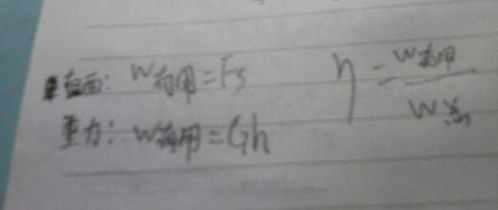 面: W有用=Fs
重力: W有用=Gh
η=W有用/W总